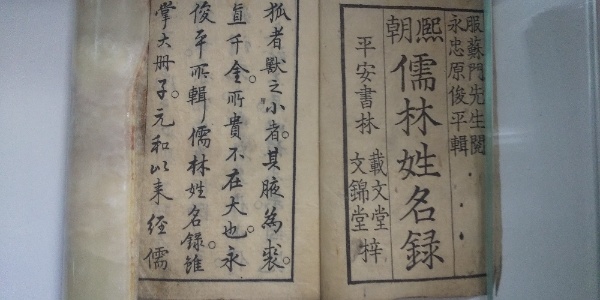 服蘇門先生閱
永忠原俊平輯
熙朝
儒林姓名録
平安書林
載文堂
文錦堂
梓
狐者獸之小者。其腋為裘。
直千金。所貴不在大也。永
俊平所輯儒林姓名録。雖
掌大冊子。元和以来經儒